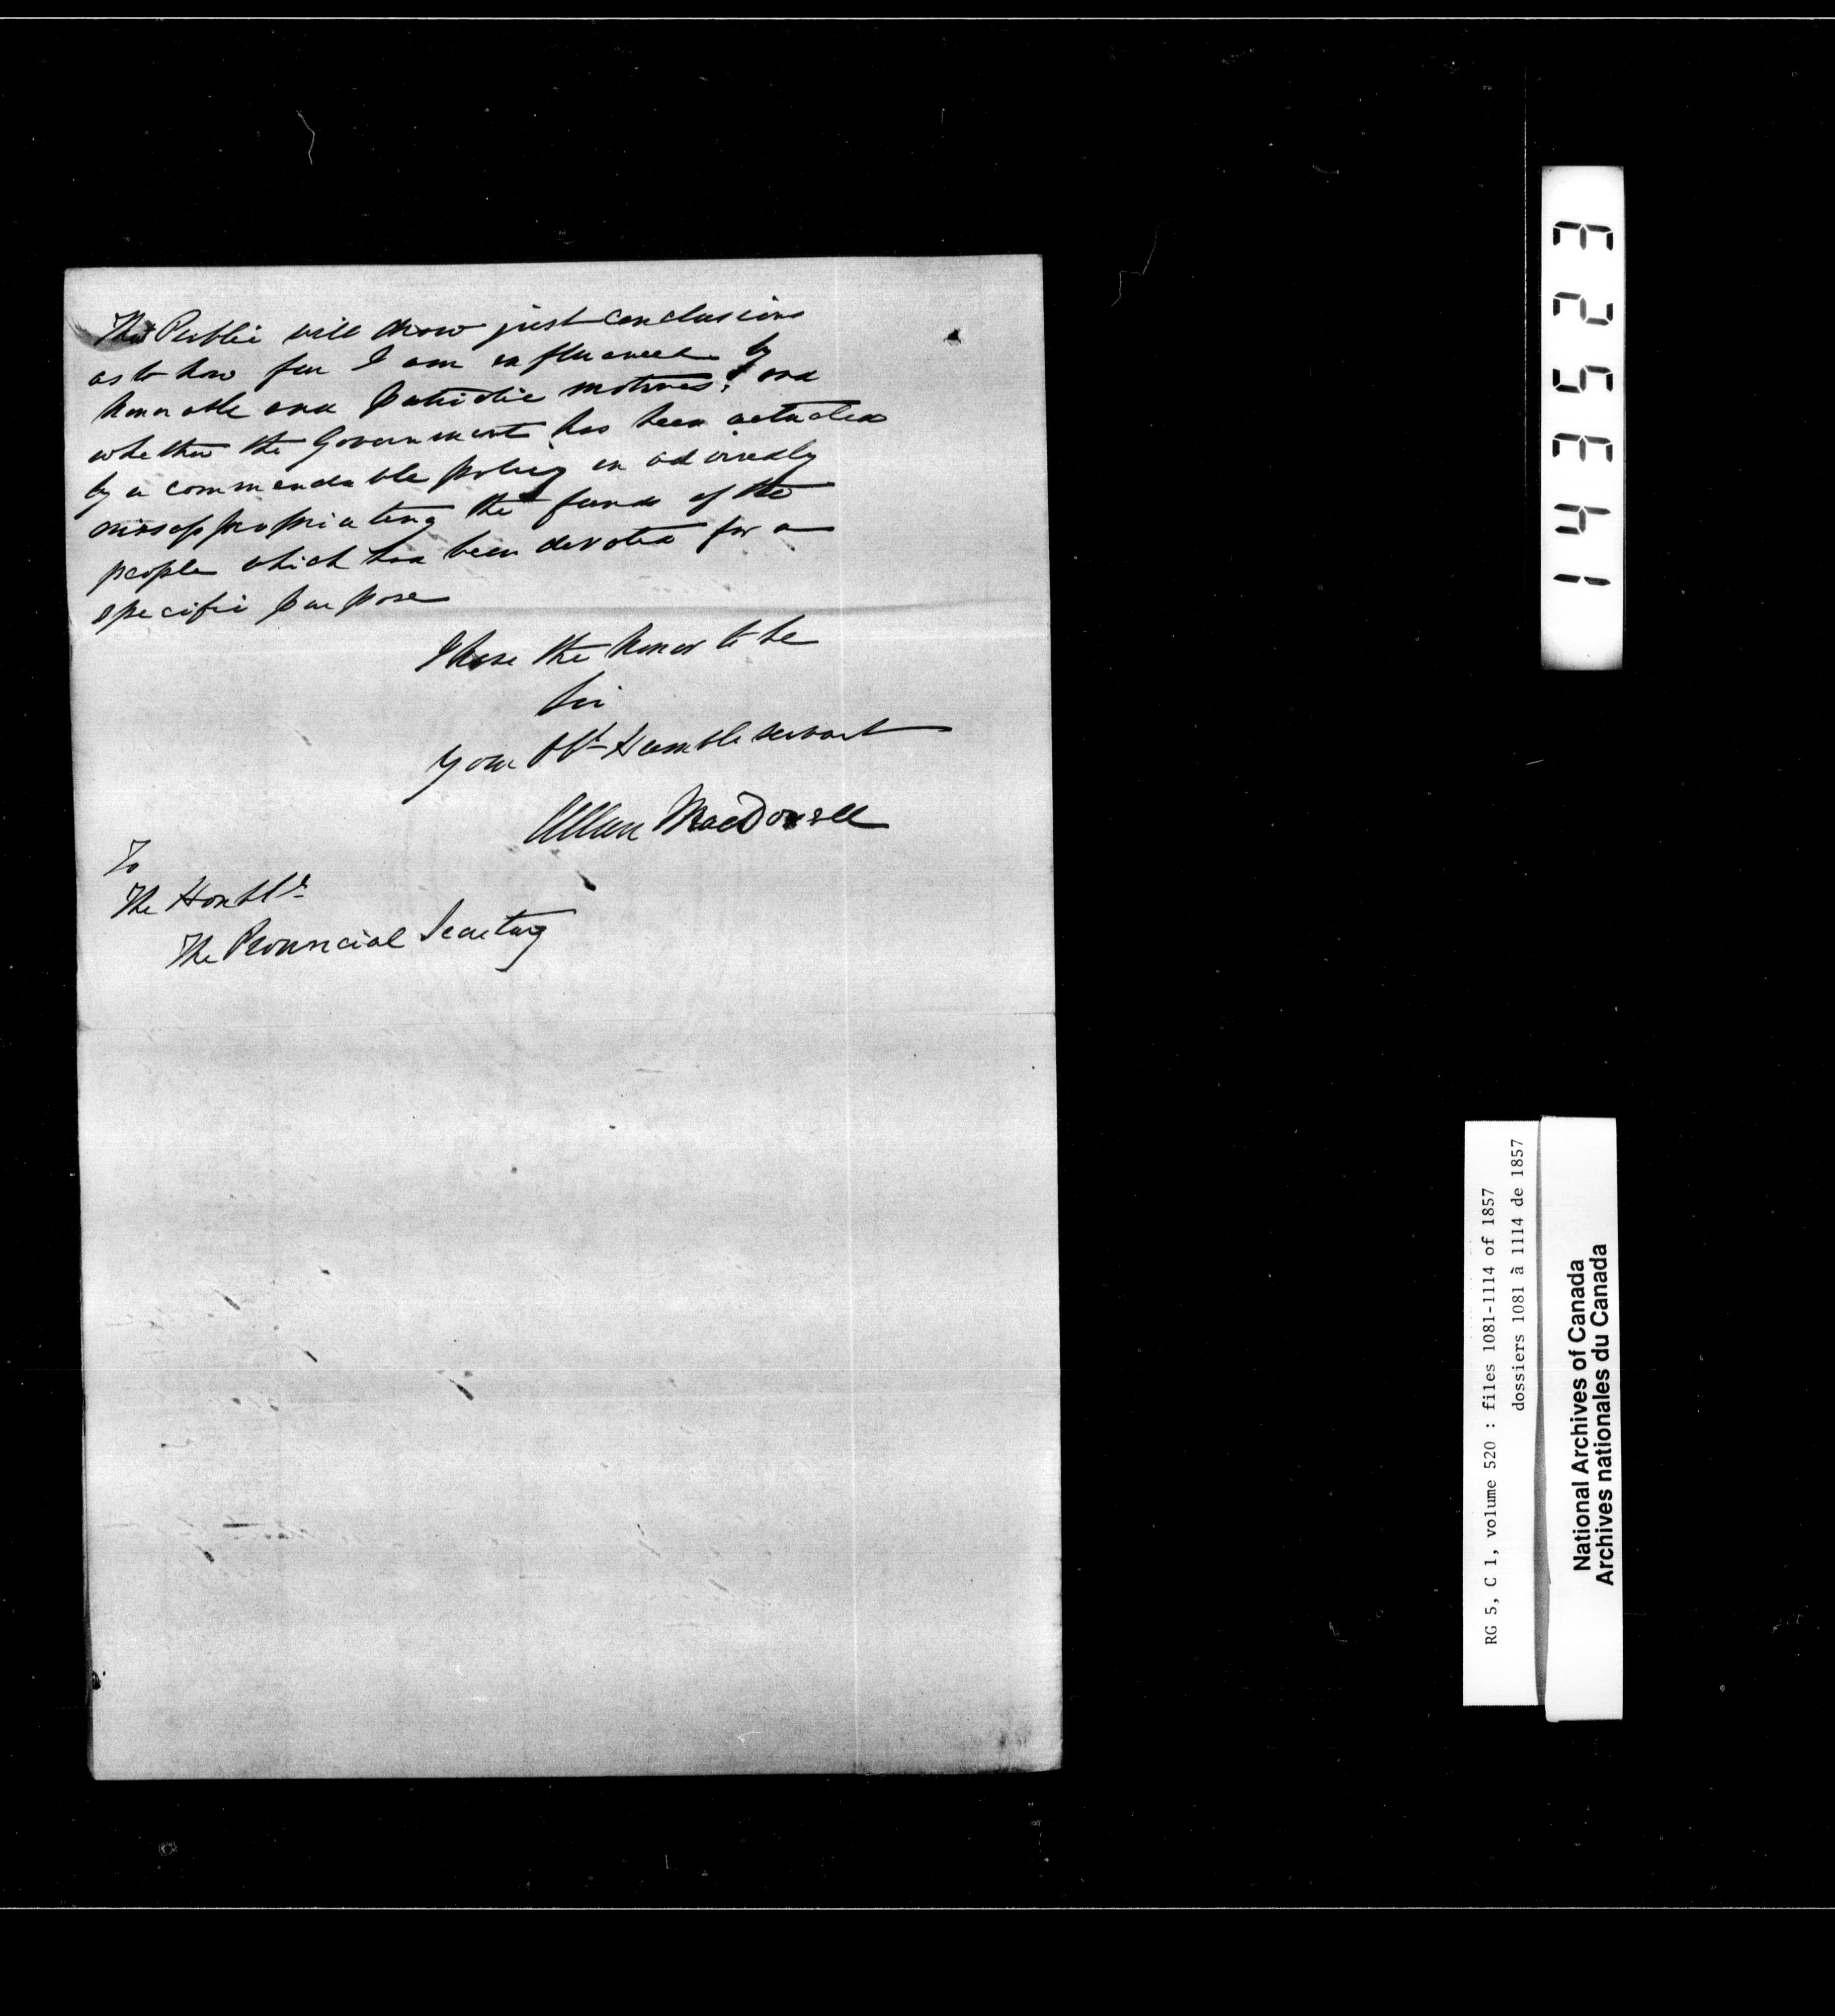 The Public will draw just conclusions
as to how far I am influenced by
honorable and patriotic motives; and
whether the Government has been actuated
by a commendable policy in advisedly
missappropriating the funds of the
people which had been devoted for a
specific purpose
I have the honor to be
Sir
Your Obt Humble Servant
Allan MacDonell
To
The Honble
The Provincial Secretary
143523
RG 5, C 1, volume 520 : files 1081-1114 of 1857
dossiers 1081 à 1114 de 1857
National Archives of Canada
Archives nationales du Canada